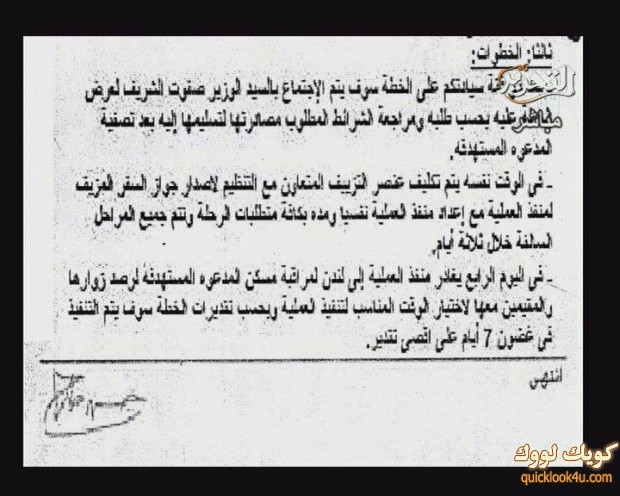 ثالثا: الخطوات:
سيادتكم على الخطة سوف يتم الإجتماع بالسيد الوزير صفوت الشريف لعرض
عليه بحسب طلبه ومراجعة الشرائط المطلوب مصادرتها لتسليمها إليه بعد تصفية
المدعوه المستهدفه.
ـ فى الوقت نفسه يتم تكليف عنصر التزييف المتعاون مع التنظيم لاصدار جواز السفر المزيف
لمنفذ العملية مع إعداد منفذ العملية نفسيا ومده بكافة متطلبات الرحلة وتتم جميع المراحل
السالفة خلال ثلاثة أيام.
ـ فى اليوم الرابع يغادر منفذ العملية إلى لندن لمراقبة مسكن المدعوه المستهدفة لرصد زوارها
والمقيمين معها لاختيار الوقت المناسب لتنفيذ العملية وبحسب تقديرات الخطة سوف يتم التنفيذ
فى غضون 7 أيام على اقصى تقدير.
أنتهى
التحرير
مباشر
كويك لووك
quicklook4u.com